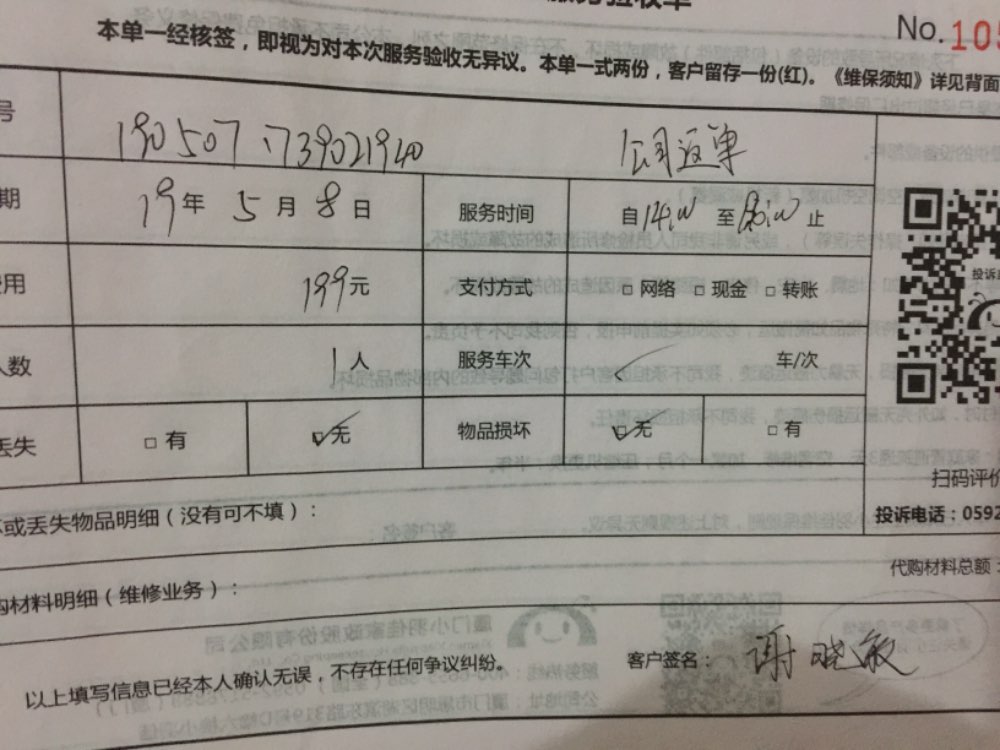 服务验收单
No. 105
本单一经核签，即视为对本次服务验收无异议。本单一式两份，客户留存一份(红)。《维保须知》详见背面
号 1905071739021940 公司返单
期 19年 5月 8日 服务时间 自14:00 至 止
费用 199元 支付方式 □ 网络 □ 现金 □ 转账
人数 1人 服务车次 车/次
丢失 □ 有 ☑ 无 物品损坏 ☑ 无 □ 有
投诉
扫码评价
坏或丢失物品明细（没有可不填）：
投诉电话：0592
购材料明细（维修业务）：
代购材料总额：
以上填写信息已经本人确认无误，不存在任何争议纠纷。
客户签名： 谢晓敏